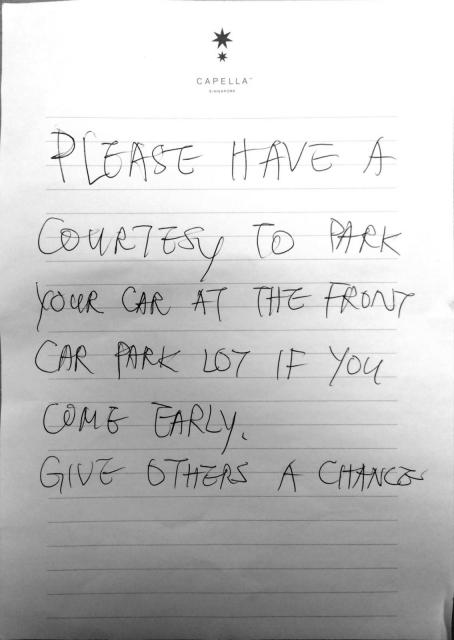 CAPELLA™
SINGAPORE
PLEASE HAVE A
COURTESY TO PARK
YOUR CAR AT THE FRONT
CAR PARK LOT IF YOU
COME EARLY.
GIVE OTHERS A CHANCE